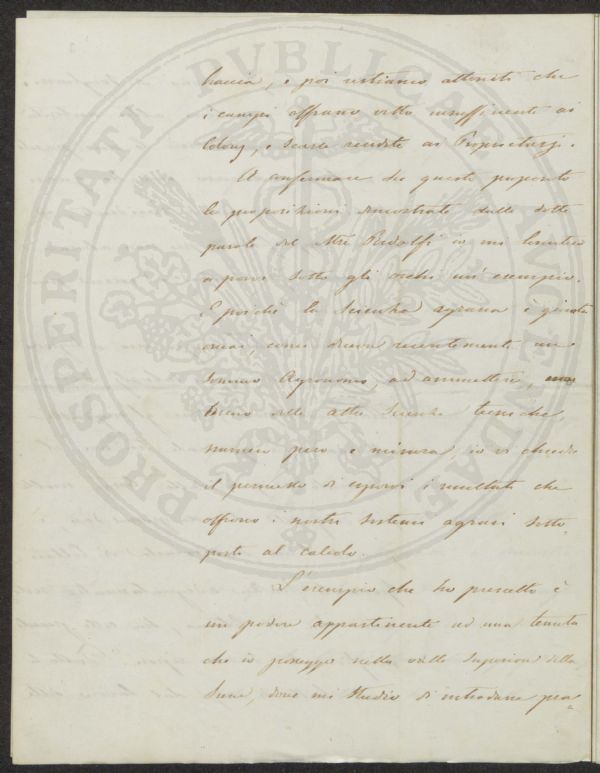 PROSPERITATI PUBLICAE AUGENDAE
braccia, e poi restiamo attoniti che
i campi offrano vitto insufficiente ai
Coloni, e scarse rendite ai Proprietarj.
A confermare su questo proposito
le proposizioni dimostrate dalle dotte
parole del Mse Ridolfi io mi limiterò
a porvi sotto gli occhi un' esempio.
E poichè la Scienza agraria è giunta
omai, come diceva recentemente un
sommo Agronomo, ad ammettere,
meno delle altre scienze tecniche,
numero peso e misura, io vi chiedo
il permesso di esporvi i resultati che
offrono i nostri sistemi agrari sotto-
posti al calcolo.
L'esempio che ho prescelto è
un podere appartenente ad una tenuta
che io posseggo nella valle superiore della
, dove mi studio di introdurre pra=